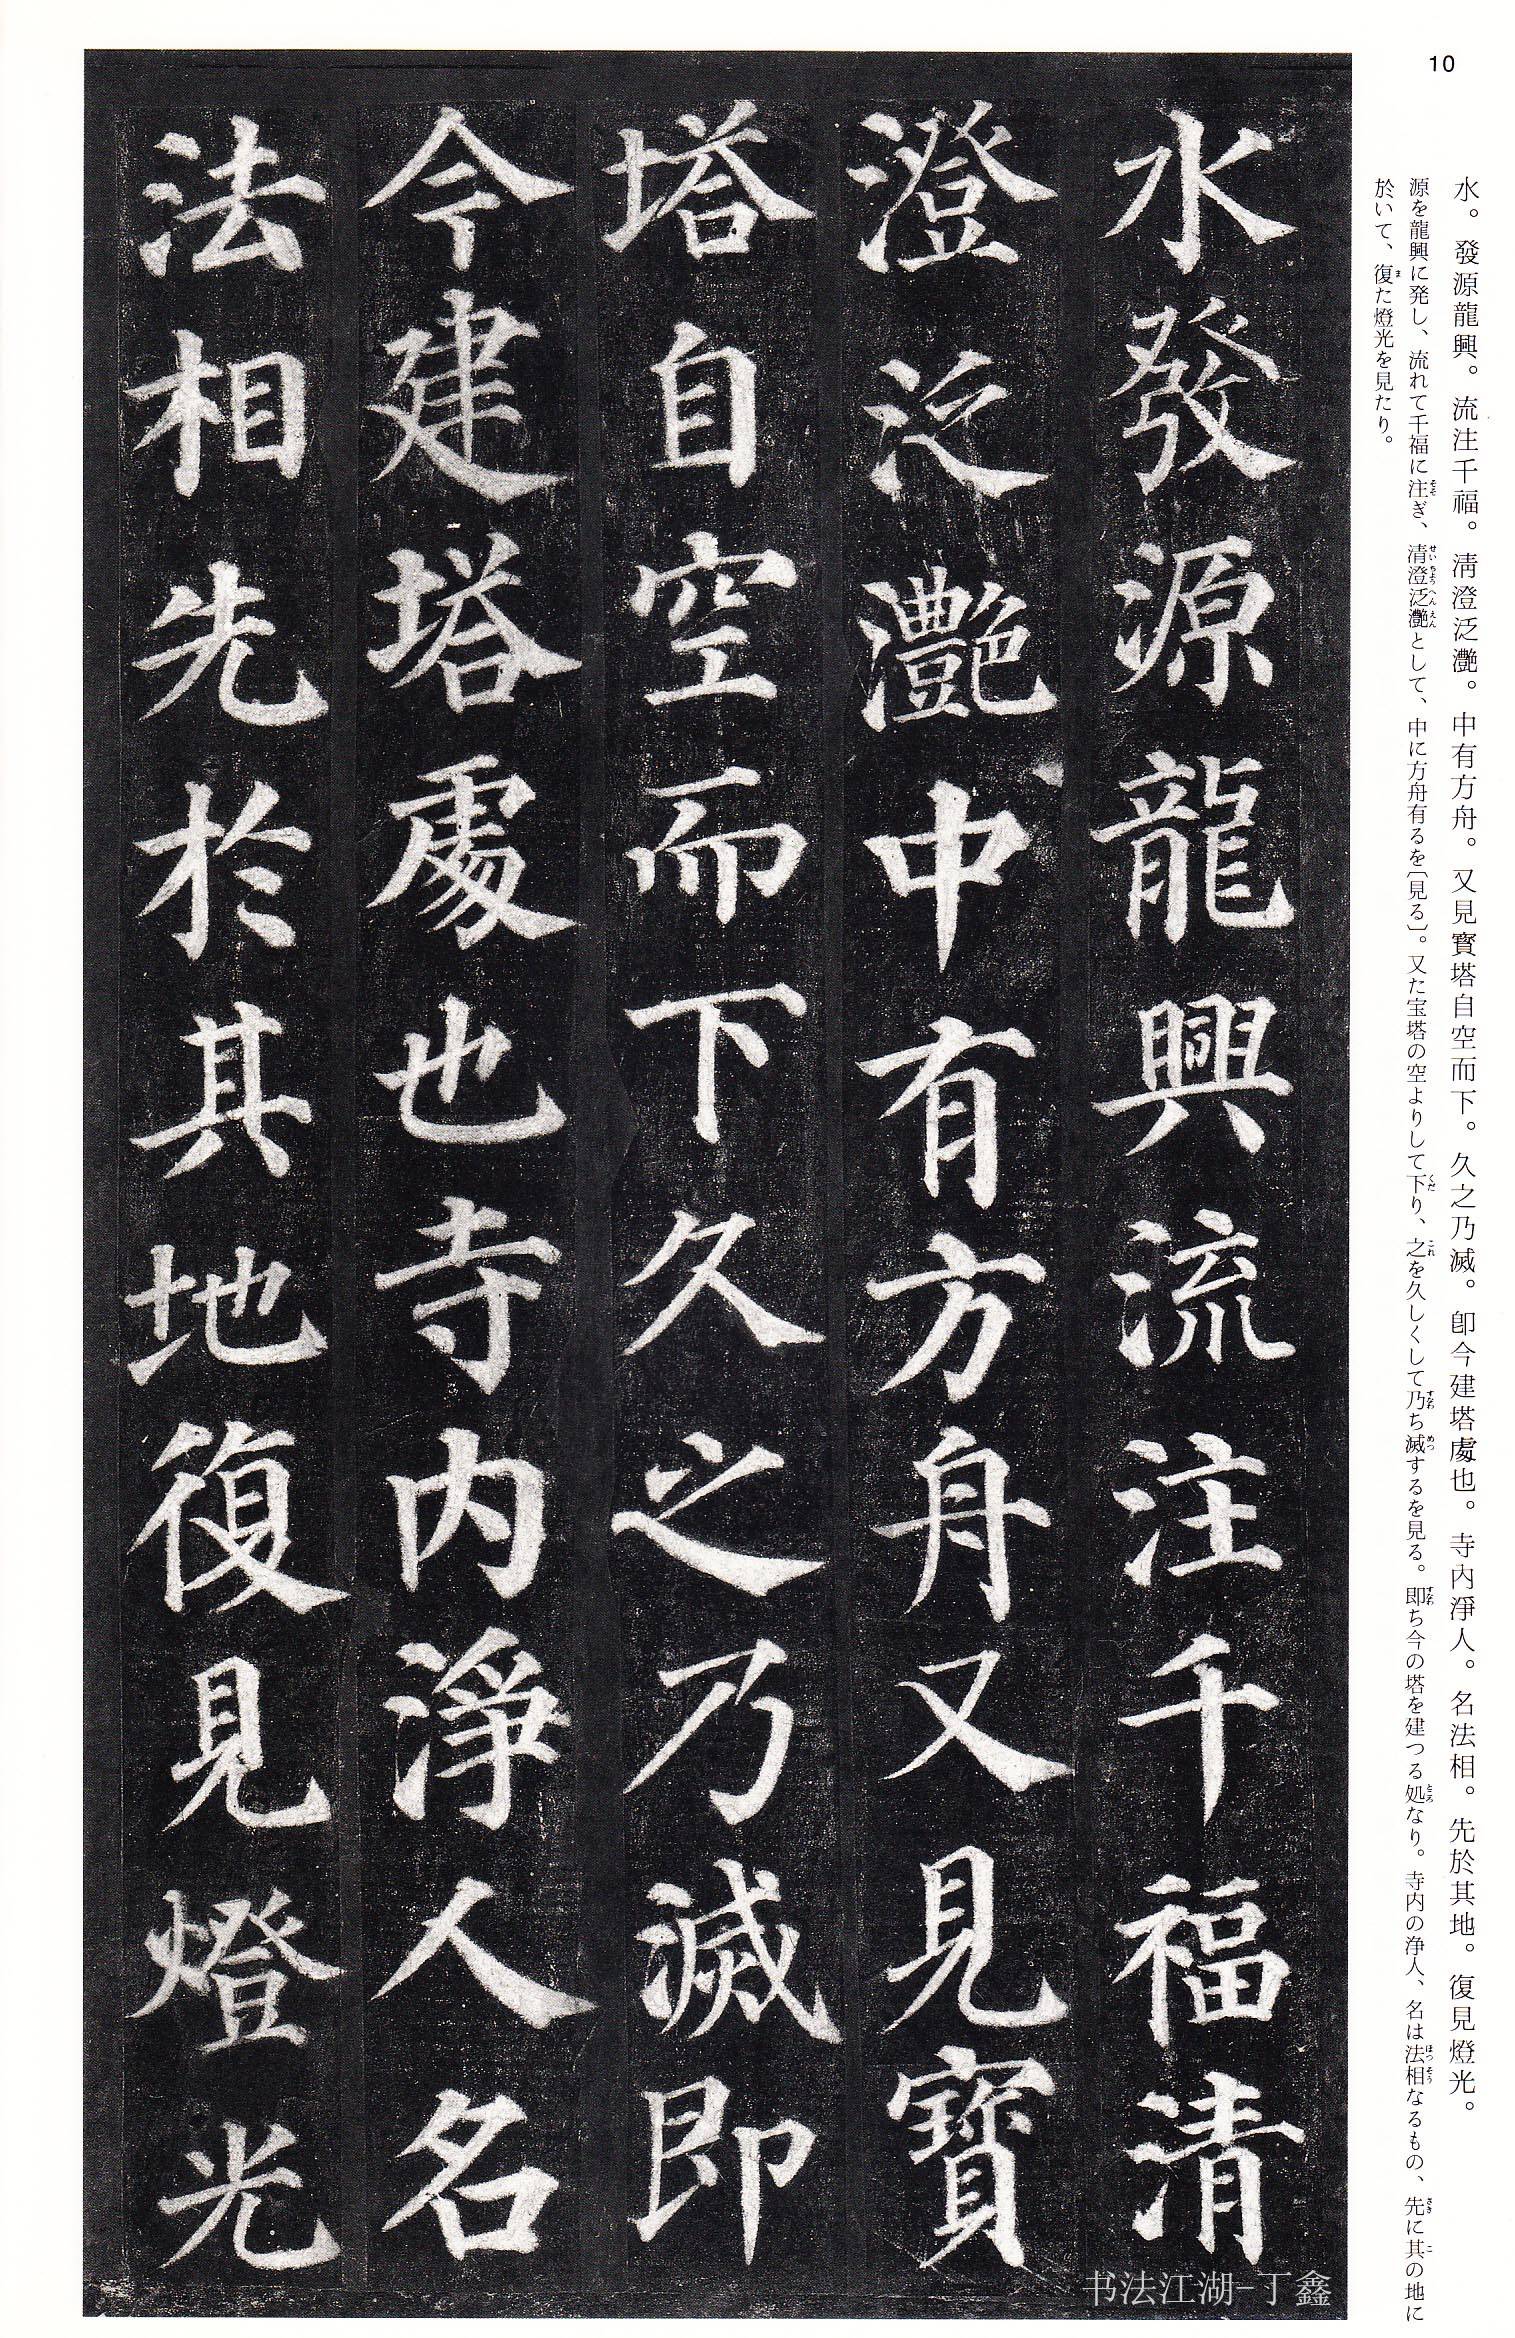 10
水。發源龍興。流注千福。淸澄泛灩。中有方舟。又見寳塔自空而下。久之乃滅。卽今建塔處也。寺內淨人。名法相。先於其地。復見燈光。
源を龍興に発し、流れて千福に注ぎ、清澄泛灩として、中に方舟有るを〔見る〕。又た宝塔の空よりして下り、之を久しくして乃ち滅するを見る。即ち今の塔を建つる処なり。寺内の浄人、名は法相なるもの、先に其の地に
於いて、復た燈光を見たり。
水發源龍興流注千福清
澄泛灩中有方舟又見寶
塔自空而下久之乃滅即
今建塔處也寺内淨人名
法相先於其地復見燈光
书法江湖-丁鑫